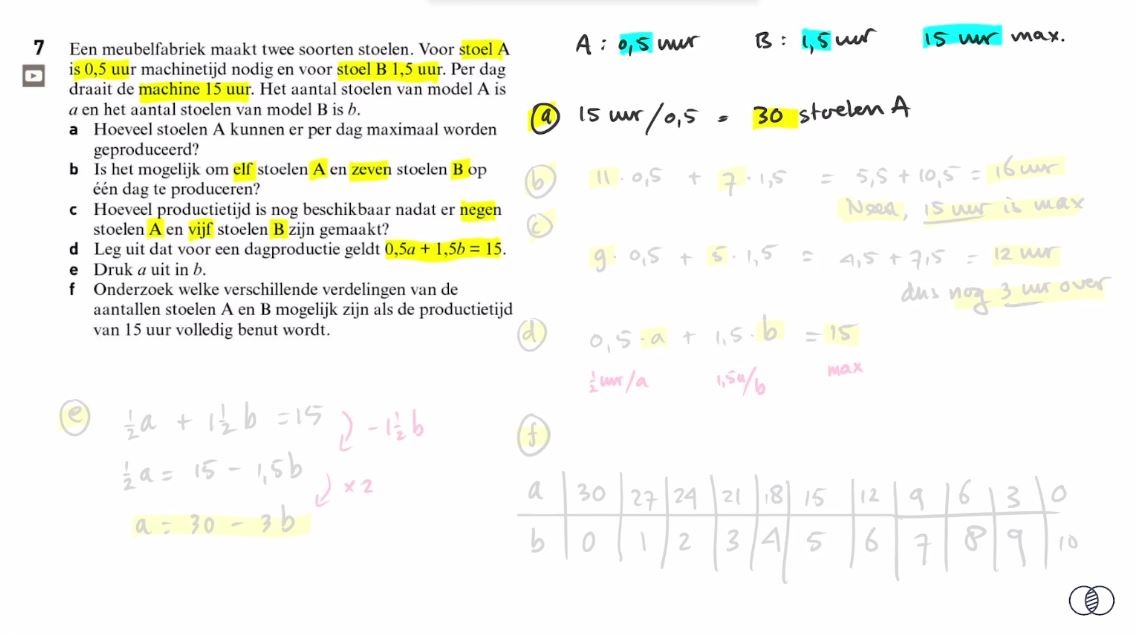 7 Een meubelfabriek maakt twee soorten stoelen. Voor stoel A
is 0,5 uur machinetijd nodig en voor stoel B 1,5 uur. Per dag
draait de machine 15 uur. Het aantal stoelen van model A is
a en het aantal stoelen van model B is b.
a Hoeveel stoelen A kunnen er per dag maximaal worden
geproduceerd?
b Is het mogelijk om elf stoelen A en zeven stoelen B op
één dag te produceren?
c Hoeveel productietijd is nog beschikbaar nadat er negen
stoelen A en vijf stoelen B zijn gemaakt?
d Leg uit dat voor een dagproductie geldt 0,5a + 1,5b = 15.
e Druk a uit in b.
f Onderzoek welke verschillende verdelingen van de
aantallen stoelen A en B mogelijk zijn als de productietijd
van 15 uur volledig benut wordt.
A : 0,5 uur B : 1,5 uur 15 uur max.
a 15 uur / 0,5 = 30 stoelen A
b 11 · 0,5 + 7 · 1,5 = 5,5 + 10,5 = 16 uur
Neen, 15 uur is max
c
9 · 0,5 + 5 · 1,5 = 4,5 + 7,5 = 12 uur
dus nog 3 uur over
d 0,5 · a + 1,5 · b = 15
½ uur/a 1,5u/b max
e ½a + 1½b = 15 - 1½b
½a = 15 - 1,5b × 2
a = 30 - 3b
f
a 30 27 24 21 18 15 12 9 6 3 0
b 0 1 2 3 4 5 6 7 8 9 10